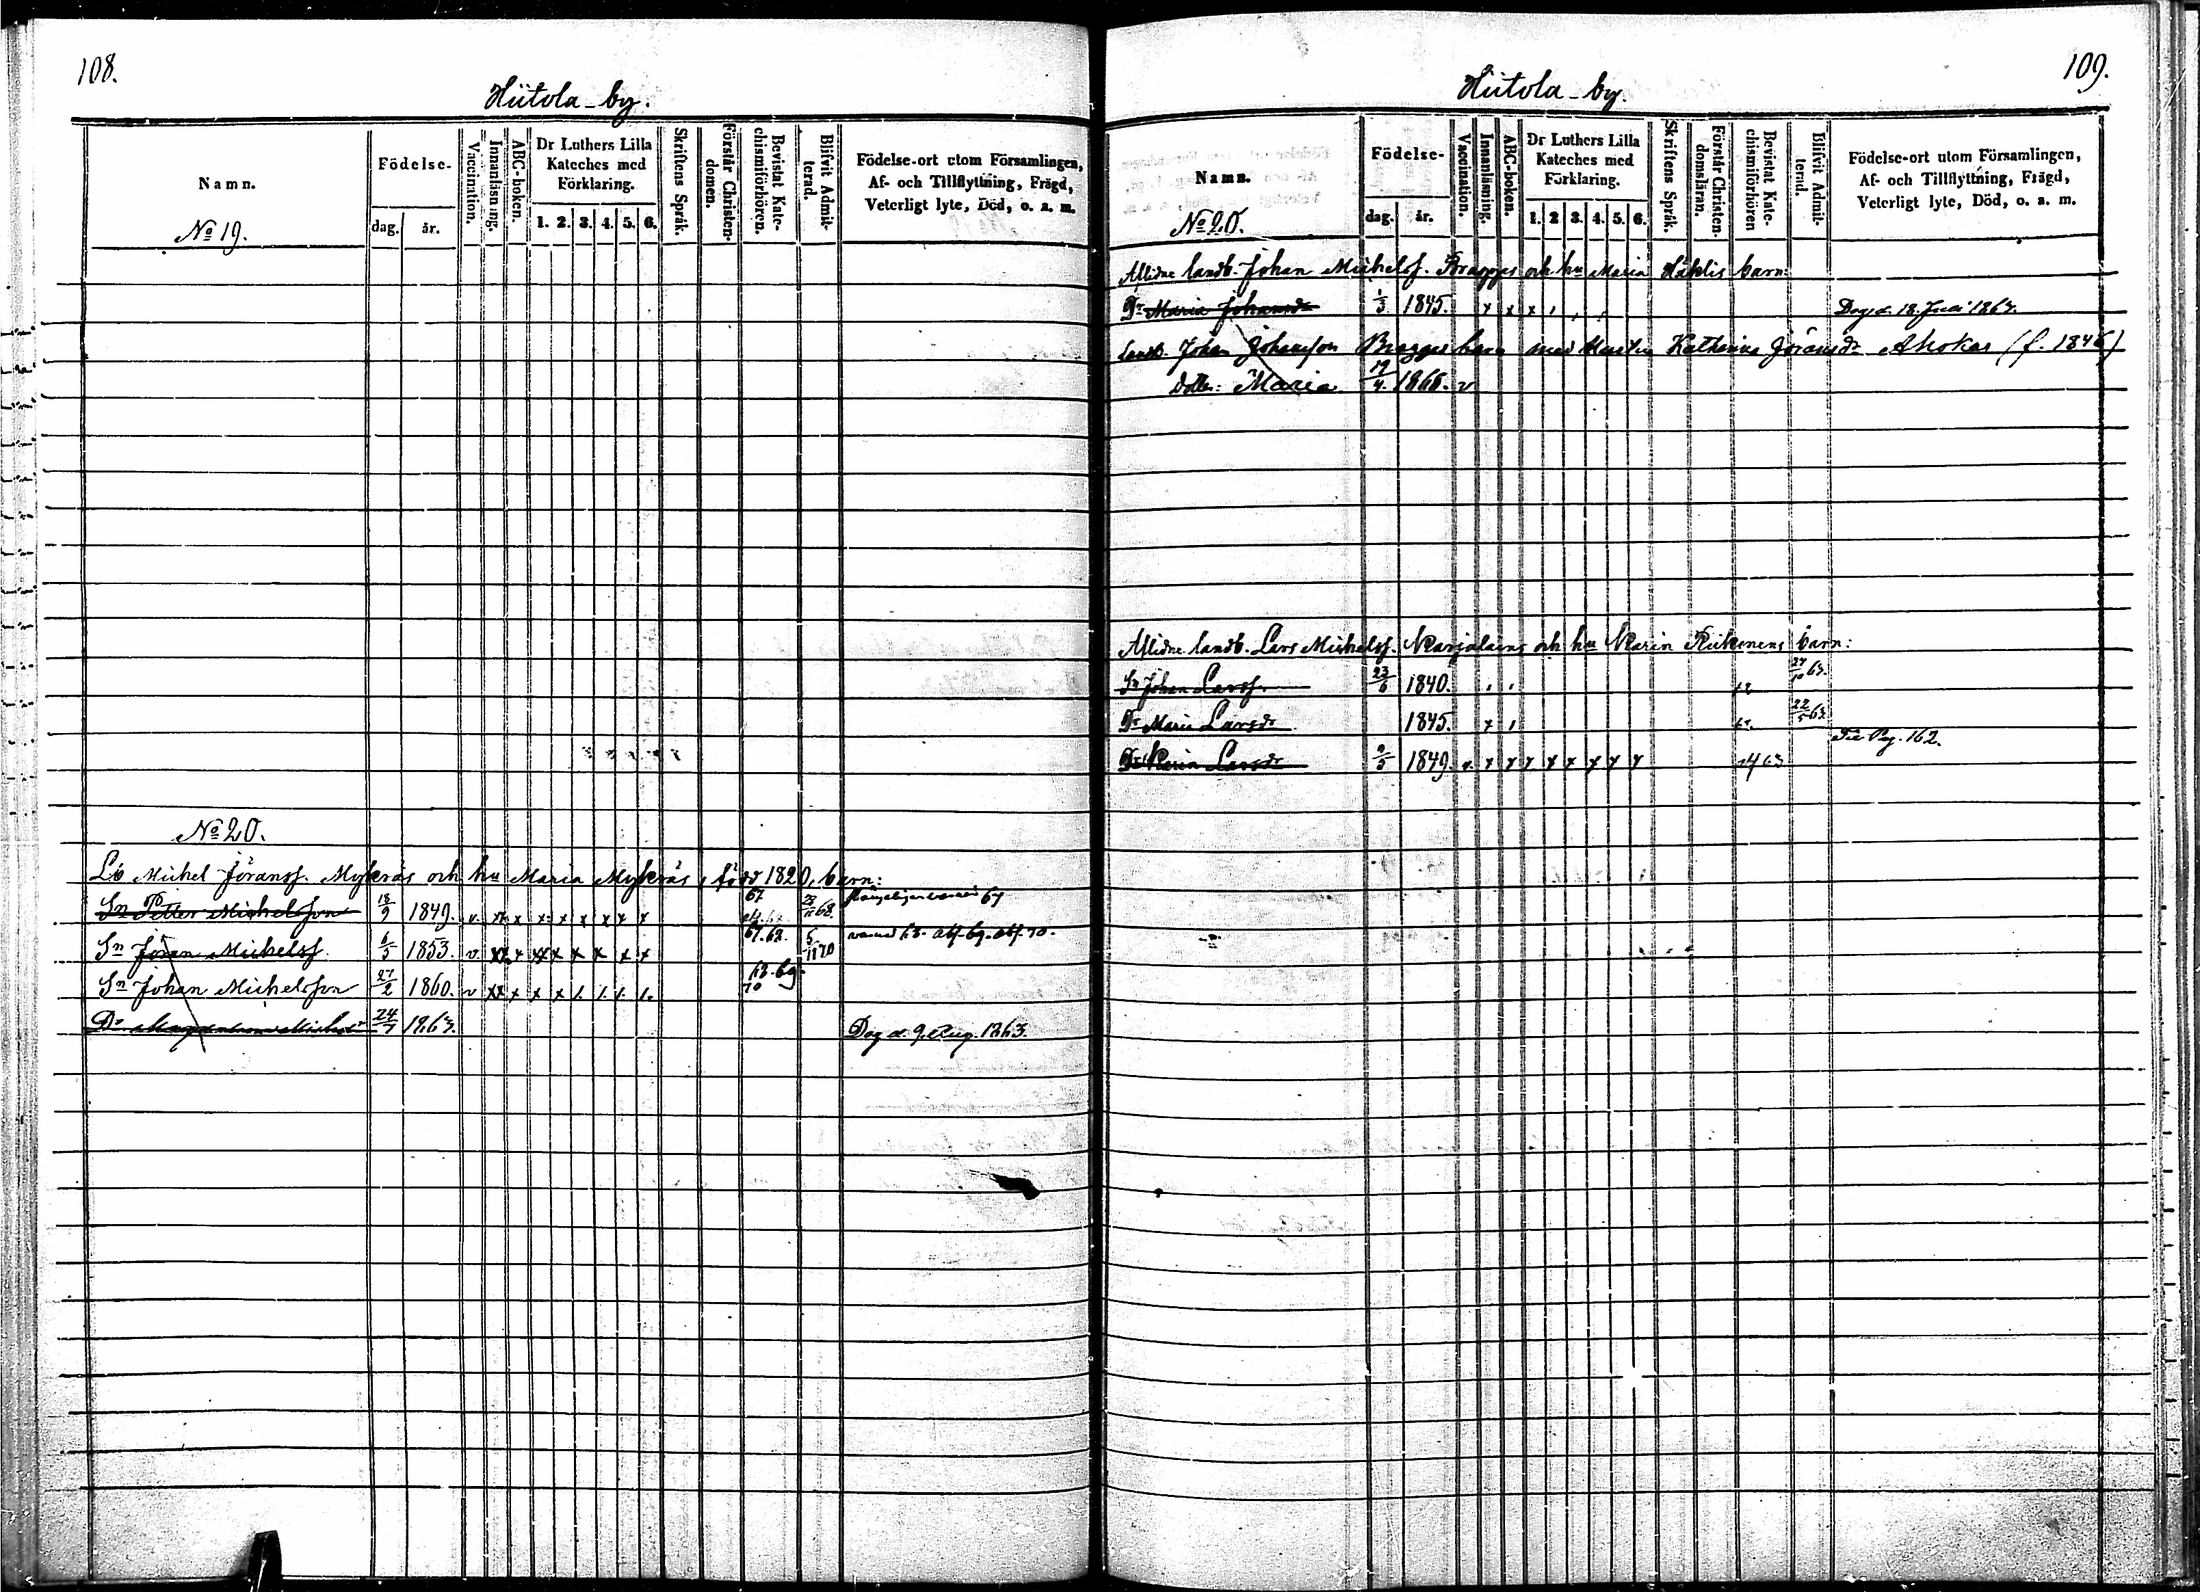 108.
Hiitola-by.
Namn.
Födelse-
dag. år.
Vaccination.
Innanläsning.
ABC-boken.
Dr Luthers Lilla
Kateches med
Förklaring.
1. 2. 3. 4. 5. 6.
Skriftens Språk.
Förstår Christen-
domen.
Bevistat Kate-
chismiförhören.
Blifvit Admit-
terad.
Födelse-ort utom Församlingen,
Af- och Tillflyttning, Frägd,
Veterligt lyte, Död, o. a. m.
No 19.
No 20.
Lb Michel Göransf. Mykräs och hu Maria Mykräs, född 1820, barn:
67.
Sn Petter Michelsson 18/9 1849. v. x x x x x x x x 23/11 68. 67
67. 68.
Sn Jöran Michelsf. 6/5 1853. v. xx x xx x x x x x 5/11 70
68. 69.
Sn Johan Michelsson 27/2 1860. v xx x x x 1. 1. 1. 1. 70
Dr 24/7 1863. Dog d. 9. Aug. 1863.
109.
Hiitola-by.
Namn.
Födelse-
dag. år.
Vaccination.
Innanläsning.
ABC-boken.
Dr Luthers Lilla
Kateches med
Förklaring.
1. 2 3. 4. 5. 6.
Skriftens Språk.
Förstår Christen-
domsläran.
Bevistat Kate-
chismiförhören
Blifvit Admit-
terad.
Födelse-ort utom Församlingen,
Af- och Tillflyttning, Frägd,
Veterligt lyte, Död, o. a. m.
No 20.
Aflidne landb. Johan Michelsf. Bragges och hu Maria Häklis barn:
Dr Maria Johansdr 1/3 1845. x x x Dog d. 18. Juni 1867.
Landb. Johan Johansson Bragges barn med Hustru Katharina Göransdr Ahokas (f. 1846)
Dotter: Maria 19/4. 1866. v
Aflidne landb. Lars Michelsf. Karjalains och hu Karin Kiikonens barn:
Sn Johan Larsf. 23/6 1840. 27/10 63.
Dr Maria Larsdr 1845. x 22/5 63.
Dr Karin Larsdr 9/5 1849. v. x x x x x x x x Se Pg. 162.